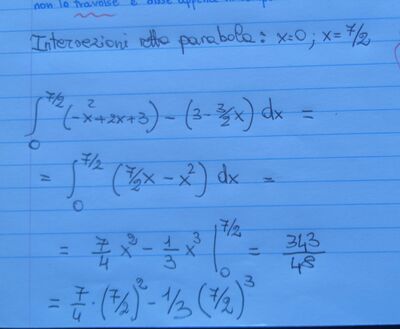 non lo travolse e
Intersezioni retta parabola: x=0; x=7/2
∫₀^{7/2} (-x²+2x+3) - (3-3/2x) dx =
= ∫₀^{7/2} (7/2x - x²) dx =
= 7/4 x² - 1/3 x³ |₀^{7/2} = 343/48
= 7/4 · (7/2)² - 1/3 (7/2)³